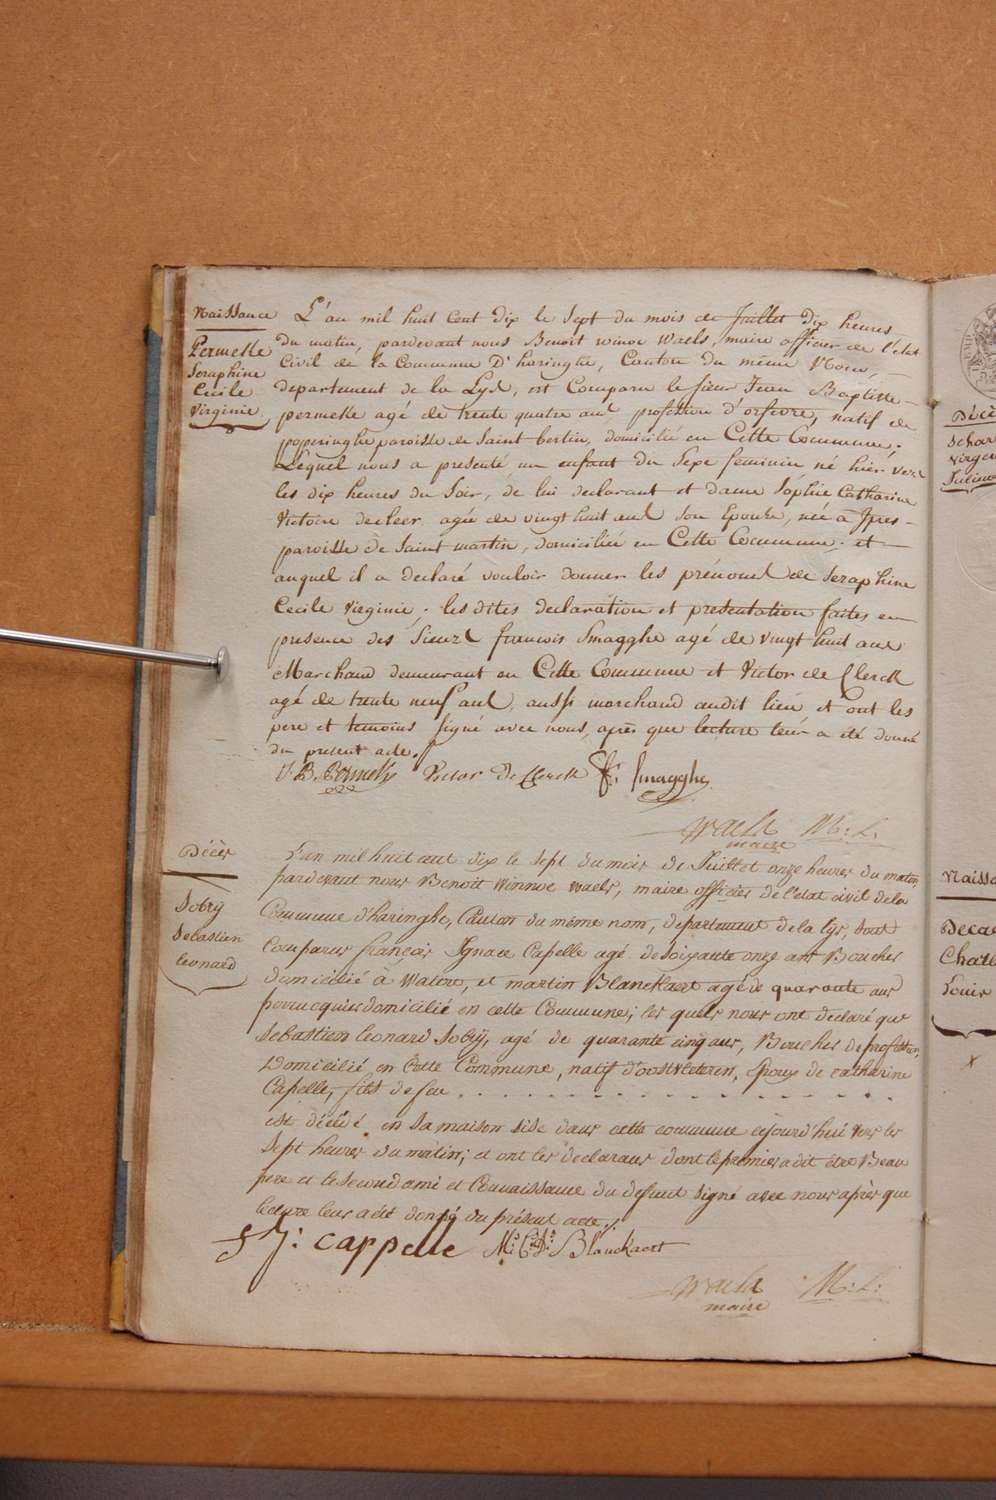 Naissance
Permelle
Seraphine
Cecile
Virginie
L'an mil huit Cent Dix le Sept du mois de Juillet Dix heures
du matin, pardevant nous Benoit winoc waels, maire officier de l'etat
Civil de la Commune D'haringhe, Canton du même Nom,
departement de la Lys, est Comparu le sieur Jean Baptiste
permelle agé de trente quatre ans profession d'orfevre, natif de
poperinghe paroisse de Saint bertin, domicilié en Cette Commune.
Lequel nous a presenté un enfant du Sexe feminin né hier vers
les dix heures du Soir, de lui declarant et dame Sophie Catharine
Victoire decleer agée de vingt huit ans Son Epouse, née à Ipres
paroisse de Saint martin, domiciliée en Cette Commune. et
auquel il a declaré vouloir donner les prénoms de Seraphine
Cecile Virginie. les dites declaration et presentation faites en
presence des Sieurs francois Smagghe agé de vingt huit ans
Marchand demeurant en Cette Commune et Victor de Clerck
agé de trente neuf ans, aussi marchand audit lieu et ont les
pere et temoins signé avec nous, après que lecture leur a été donné
du present acte.
J. B. Permelle Victor De Clerck F: Smagghe
Waels M: L:
maire
Décès
Sobry
Sebastien
leonard
L'an mil huit cent dix le sept du mois de Juillet onze heures du matin,
pardevant nous Benoit Winnoc waels, maire officier de l'etat civil de la
Commune d'haringhe, Canton du même nom, departement de la lys, sont
Comparus françois Ignace Capelle agé de Soixante onze ans Boucher
domicilié à Watou, et martin Blanckaert agé de quarante ans
perruquier domicilié en cette Commune; les quels nous ont declaré que
Sebastien leonard Sobrÿ, agé de quarante cinq ans, Boucher de profession,
Domicilié en Cette Commune, natif d'oostvleteren, Epoux de catharine
Capelle, fils de feu . . . . . . . . . . . . . . . .
est décédé en sa maison sise dans cette commune cejourd'hui vers les
Sept heures du matin; et ont les declarans dont le premier a dit être Beau
pere et le second ami et Connaissance du defunt signé avec nous après que
lecture leur a été donné du présent acte.
f J: cappelle M: C: D: Blanckaert
Waels M: L:
maire
Décè
Schar
Virgin
Naissa
Decae
Charl
Louis